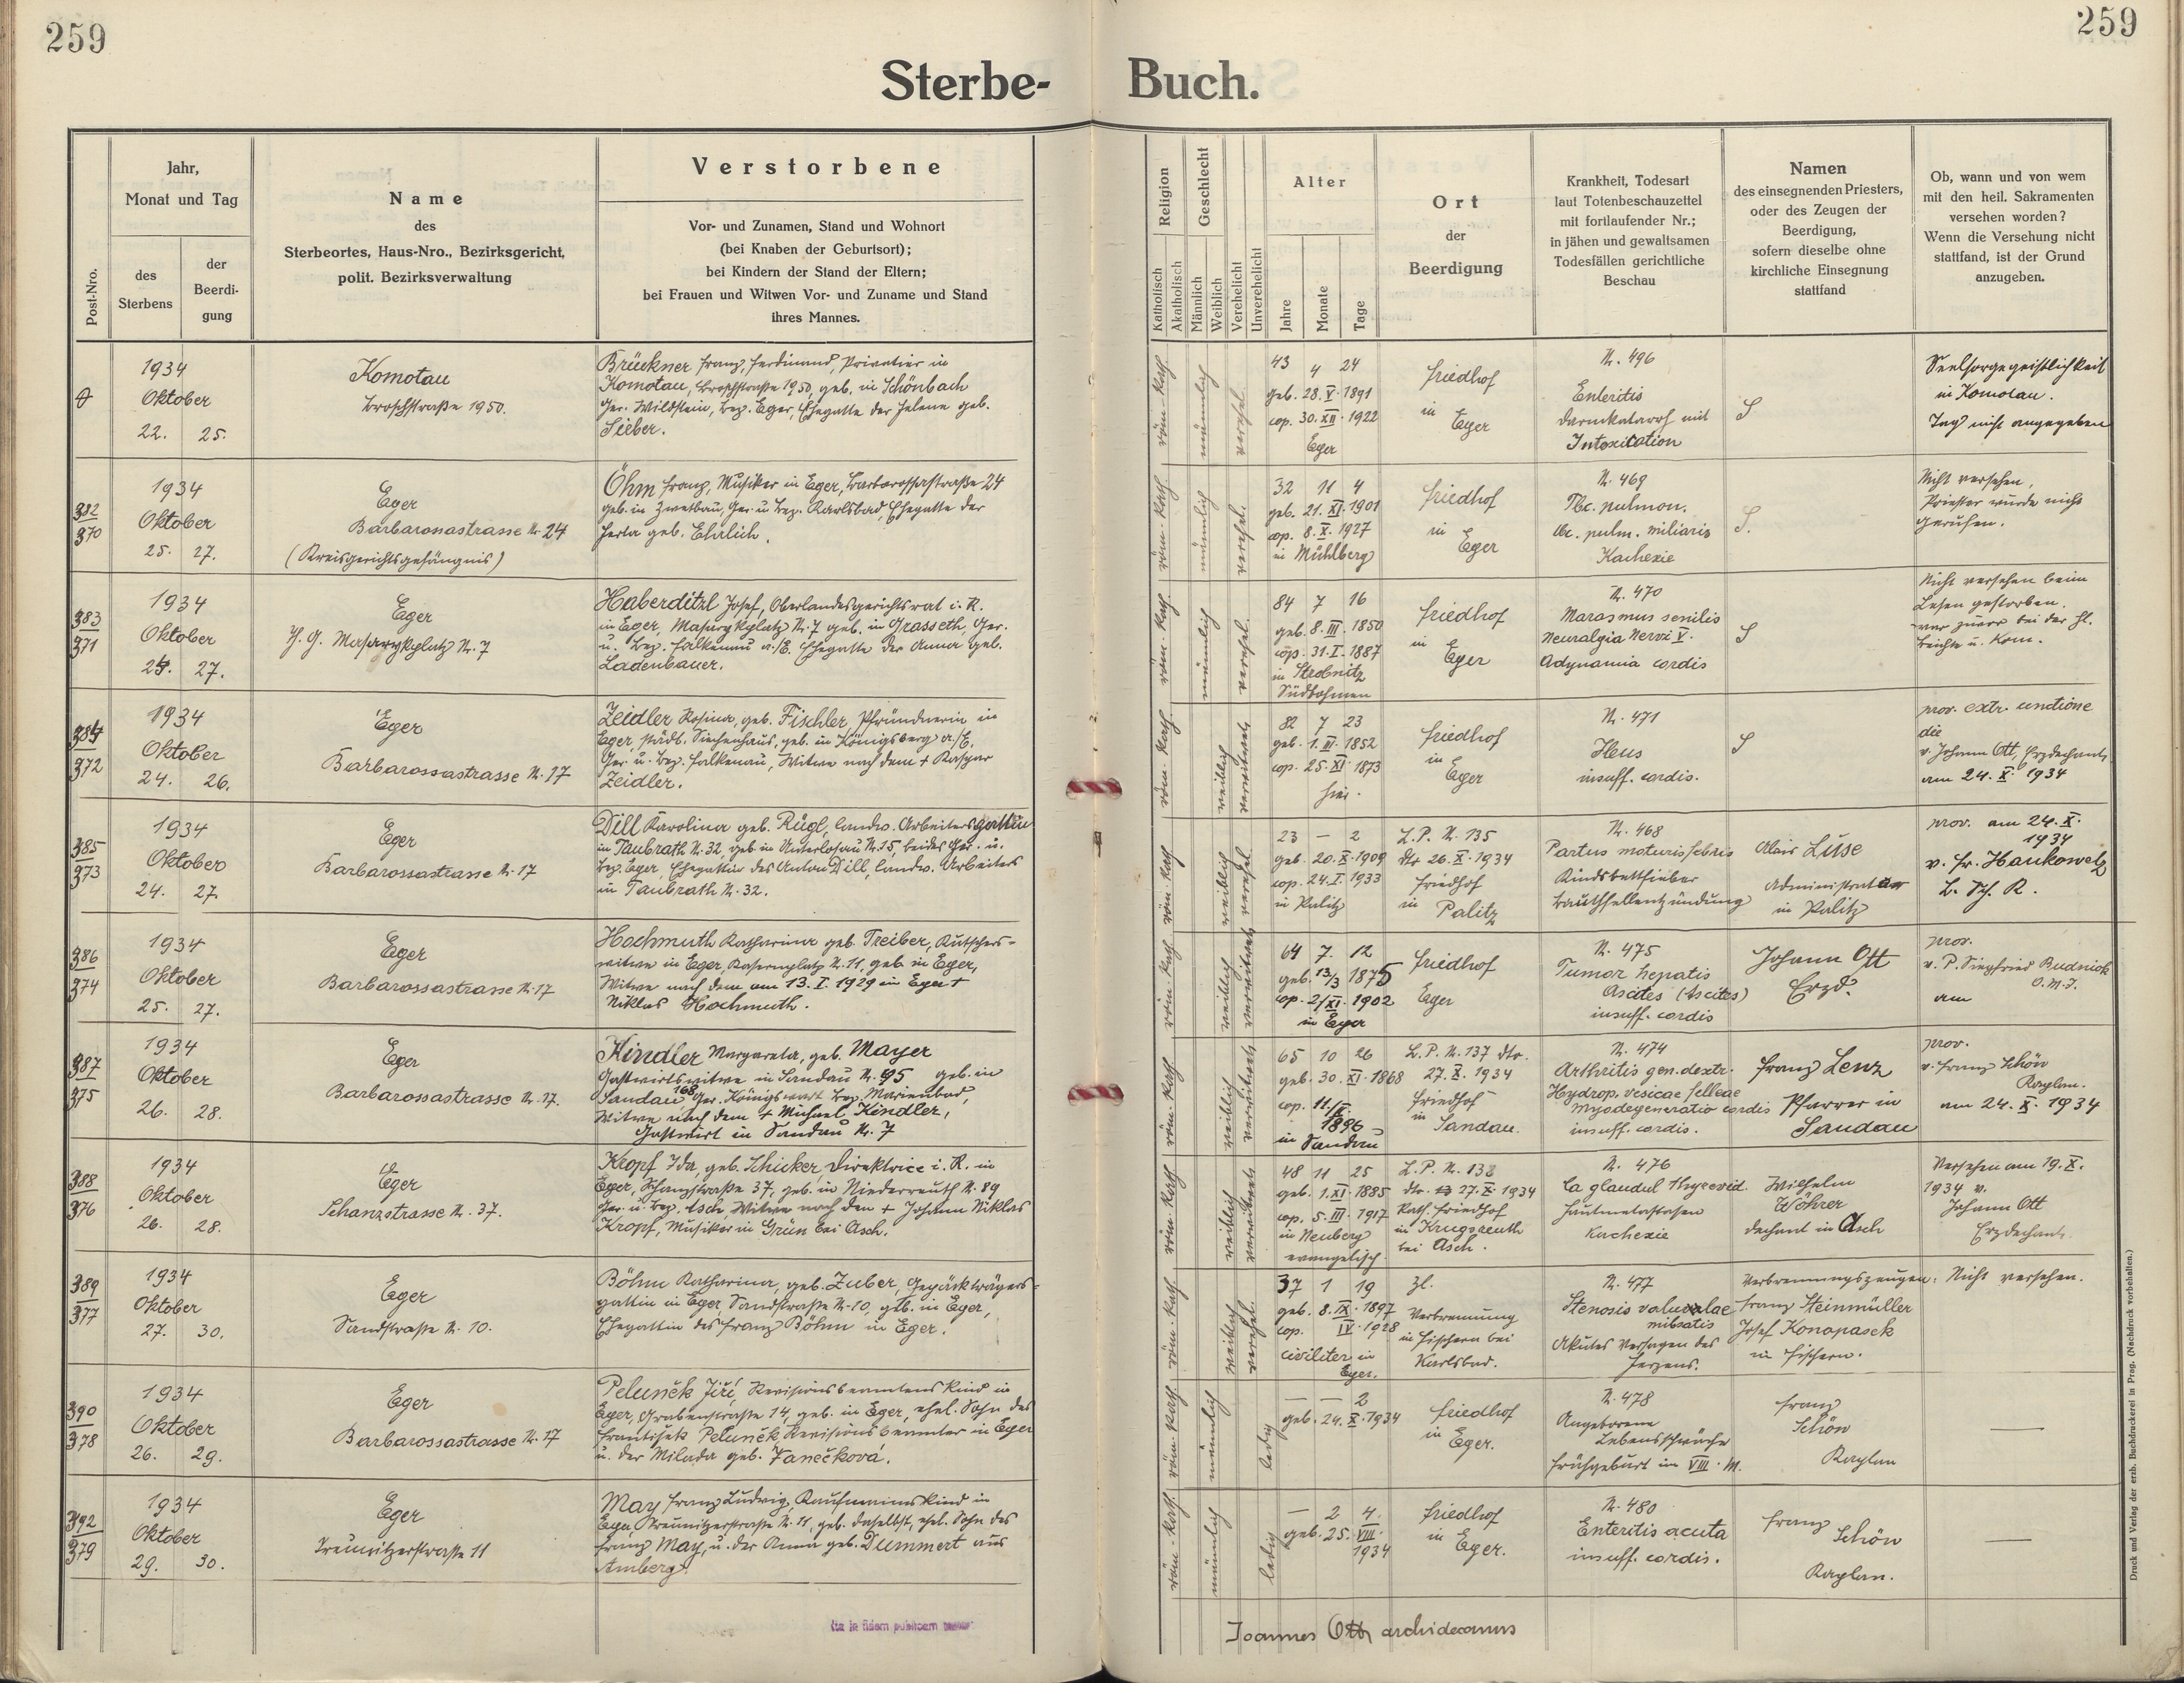 259
259
Sterbe-
Buch.
Post-Nro.
Jahr,
Monat und Tag
des
Sterbens
der
Beerdi-
gung
Name
des
Sterbeortes, Haus-Nro., Bezirksgericht,
polit. Bezirksverwaltung
Verstorbene
Vor- und Zunamen, Stand und Wohnort
(bei Knaben der Geburtsort);
bei Kindern der Stand der Eltern;
bei Frauen und Witwen Vor- und Zuname und Stand
ihres Mannes.
Religion
Katholisch
Akatholisch
Geschlecht
Männlich
Weiblich
Verehelicht
Unverehelicht
Alter
Jahre
Monate
Tage
Ort
der
Beerdigung
Krankheit, Todesart
laut Totenbeschauzettel
mit fortlaufender Nr.;
in jähen und gewaltsamen
Todesfällen gerichtliche
Beschau
Namen
des einsegnenden Priesters,
oder des Zeugen der
Beerdigung,
sofern dieselbe ohne
kirchliche Einsegnung
stattfand
Ob, wann und von wem
mit den heil. Sakramenten
versehen worden?
Wenn die Versehung nicht
stattfand, ist der Grund
anzugeben.
1934
Oktober
22. 25.
Komotau
1950.
Brückner Franz, Ferdinand, Privatier in
Komotau, 1950, geb. in Schönbach
Ger. Wildstein, Bez. Eger, Ehegatte der Helene geb.
Sieber.
röm-kath.
männlich
verehel.
43 4 24
geb. 28. V. 1891
cop. 30. XII. 1922
Eger
Friedhof
in
Eger
N. 496
Enteritis
Darmkatarrh mit
Intoxication
S
Seelsorgegeistlichkeit
in Komotau.
Tag nicht angegeben
382
370
1934
Oktober
25. 27.
Eger
Barbarossastrasse N. 24
(Kreisgerichtsgefängnis)
Öhm Franz, Musiker in Eger, Barbarossastraße 24
geb. in Zwetbau, Ger. u. Bez. Karlsbad, Ehegatte der
Herta geb. Ehrlich.
röm-kath.
männlich
verehel.
32 11 4
geb. 21. XI. 1901
cop. 8. X. 1927
in Mühlberg
Friedhof
in
Eger
N. 469
Tbc. pulmon.
tbc. pulm. miliaris
Kachexie
S.
Nicht versehen,
Priester wurde nicht
gerufen.
383
371
1934
Oktober
27.
Eger
T. G. Masarykplatz N. 7
Haberditzl Josef, Oberlandesgerichtsrat i. R.
in Eger, Masarykplatz N. 7 geb. in Grasseth, Ger.
u. Bez. Falkenau a./E. Ehegatte der Anna geb.
Ladenbauer.
röm-kath.
männlich
verehel.
84 7 16
geb. 8. III. 1850
cop. 31. I. 1887
in Strobnitz
Südböhmen
Friedhof
in
Eger
N. 470
Marasmus senilis
Neuralgia Nervi V.
Adynamia cordis
S
Nicht versehen beim
Lesen gestorben.
war zuvor bei der hl.
Beichte u. Kom.
384
372
1934
Oktober
24. 26.
Eger
Barbarossastrasse N. 17
Zeidler Rosina, geb. Fischler Pfründnerin in
Eger, städt. Siechenhaus, geb. in Königsberg a./E.
Ger. u. Bez. Falkenau, Witwe nach dem + Kaspar
Zeidler.
röm-kath.
weiblich
verwitwet
82 7 23
geb. 1. III. 1852
cop. 25. XI. 1873
hier.
Friedhof
in
Eger
N. 471
Ileus
insuff. cordis.
S
prov. extr. unctione
die
v. Johann Ott, Erzdechant,
am 24. X. 1934
385
373
1934
Oktober
24. 27.
Eger
Barbarossastrasse N. 17
Dill Karolina geb. Rügl, landw. Arbeitersgattin
in Taubrath N. 32, geb in Unterlosau N. 15, beides Ger. u.
Bez. Eger, Ehegattin des Anton Dill, landw. Arbeiters
in Taubrath N. 32.
röm-kath
weiblich
verehel.
23 — 2
geb. 20. X. 1909
cop. 24. I. 1933
in Palitz
L.P. N. 135
dto 26. X. 1934
Friedhof
in Palitz
N. 468
Kindbettfieber
Bauchfellentzündung
Alois Luse
Administrator
in Palitz
prov. am 24. X.
1934
v. Fr. Hankowetz
386
374
1934
Oktober
25. 27.
Eger
Barbarossastrasse N. 17
Hochmuth Katharina geb. Treiber, Kutschers-
witwe in Eger, Kasernplatz N. 11, geb. in Eger,
Witwe nach dem am 13. I. 1929 in Eger +
Niklas Hochmuth.
röm-kath
weiblich
verwitwet
64 7. 12
geb. 13/3 1875
cop. 2/XI. 1902
in Eger
Friedhof
Eger
N. 475
Tumor hepatis
Ascites (Ascites)
insuff. cordis
Johann Ott
Erzd.
prov.
v. P. Siegfried Rudnick
O.M.I.
am
387
375
1934
Oktober
26. 28.
Eger
Barbarossastrasse N. 17.
Kindler Margareta, geb. Mayer
Gastwirtswitwe in Sandau N. 95 geb. in
Sandau 168 Ger. Königswart Bez. Marienbad,
Witwe nach dem + Michael Kindler,
Gastwirt in Sandau N. 7
röm-kath
weiblich
verwitwet
65 10 26
geb. 30. XI. 1868
cop. 11./
1896
in Sandau
L.P. N. 137 dto.
27. X. 1934
Friedhof
in Sandau.
N. 474
Arthritis gen. dextr.
Hydrop. vesicae felleae
Myodegeneratio cordis
insuff. cordis.
Franz Lenz
Pfarrer in
Sandau
prov.
v. Franz Schön
Kaplan.
am 24. X. 1934
388
376
1934
Oktober
26. 28.
Eger
Schanzstrasse N. 37.
Kropf Ida, geb. Schicker, Direktrice i. R. in
Eger, Schanzstraße 37, geb. in Niederreuth N. 89
Ger. u. Bez. Asch, Witwe nach dem + Johann Niklas
Kropf, Musiker in Grün bei Asch.
röm-kath
weiblich
verwitwet
48 11 25
geb. 1. XI. 1885
cop. 5. III. 1917
in Neuberg
evangelisch
L.P. N. 138
dto. 27. X. 1934
Kath. Friedhof
in Krugsreuth
bei Asch.
N. 476
Ca glandul thyreoid.
Hautmetastasen
Kachexie
Wilhelm
Wöhrer
Dechant in Asch
Versehen am 19. X.
1934 v.
Johann Ott
Erzdechant.
389
377
1934
Oktober
27. 30.
Eger
Sandstraße N. 10.
Böhm Katharina, geb. Zuber, Gepäckträgers-
gattin in Eger, Sandstraße N. 10, geb. in Eger,
Ehegattin des Franz Böhm in Eger.
röm-kath.
weiblich
verehel.
37 1 19
geb. 8. IX. 1897
cop. IV. 1928
civiliter in
Eger.
Verbrennung
in Fischern bei
Karlsbad.
N. 477
Stenosis valvulae
Akutes Versagen des
Herzens.
Verbrennungszeugen:
Franz Steinmüller
Josef Konopasek
in Fischern.
Nicht versehen.
390
378
1934
Oktober
26. 29.
Eger
Barbarossastrasse N. 17
Peluněk Jiří, Revisionsbeamtens Kind in
Eger, Grabenstraße 14, geb. in Eger, ehel. Sohn des
František Peluněk Revisionsbeamter in Eger
u. der Milada geb. Vanečková.
röm-kath
männlich
ledig
— — 2
geb. 24. X. 1934
Friedhof
in
Eger.
N. 478
Angeborene
Lebensschwäche
Frühgeburt im VIII. M.
Franz
Schön
Kaplan
—
392
379
1934
Oktober
29. 30.
Eger
11
May Franz Ludwig, Kaufmanns Kind in
Eger N. 11, geb. daselbst, ehel. Sohn des
Franz May, u. der Anna geb. Dummert aus
Amberg.
röm-kath
männlich
ledig
— 2 4.
geb. 25. VIII.
1934
Friedhof
in Eger.
N. 480
Enteritis acuta
insuff. cordis.
Franz
Schön
Kaplan.
—
Joannes Ott, archidecanus
Druck und Verlag der erzb. Buchdruckerei in Prag. (Nachdruck vorbehalten.)